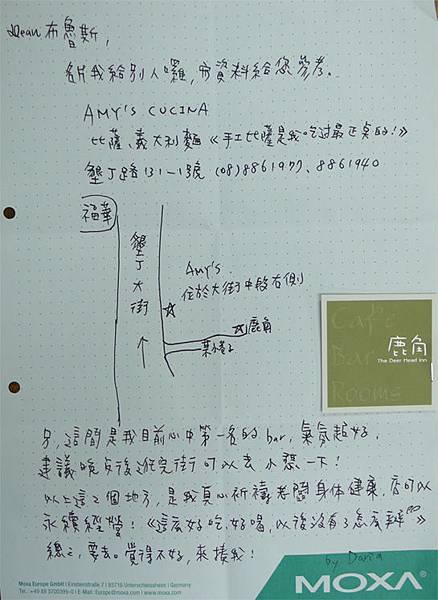 Dear 布魯斯,
名片我給別人囉,內資料給您參考。
AMY'S CUCINA
比薩、義大利麵《手工比薩是我吃过最正桌的!》
墾丁路131-1號 (08)8861977、8861940
福華
墾丁大街
AMY'S.
位於大街中段右側
鹿角
Café
Bar
Rooms
鹿角
The Deer Head Inn
另,這間是我目前心中第一名的bar,氣氛超好,
建議晚点後逛完街可以去小憩一下!
以上這2個地方,是我真心祈禱老闆身体健康,店可以
永續經營!《這麼好吃,好喝,以後沒有了怎麼辦》
總之,要去。覺得不好,來揍我!
Moxa Europe GmbH | Einsteinstraße 7 | 85716 Unterschleissheim | Germany
Tel.: +49 89 3700399-0 | E-Mail: Europe@moxa.com | www.moxa.com
MOXA®